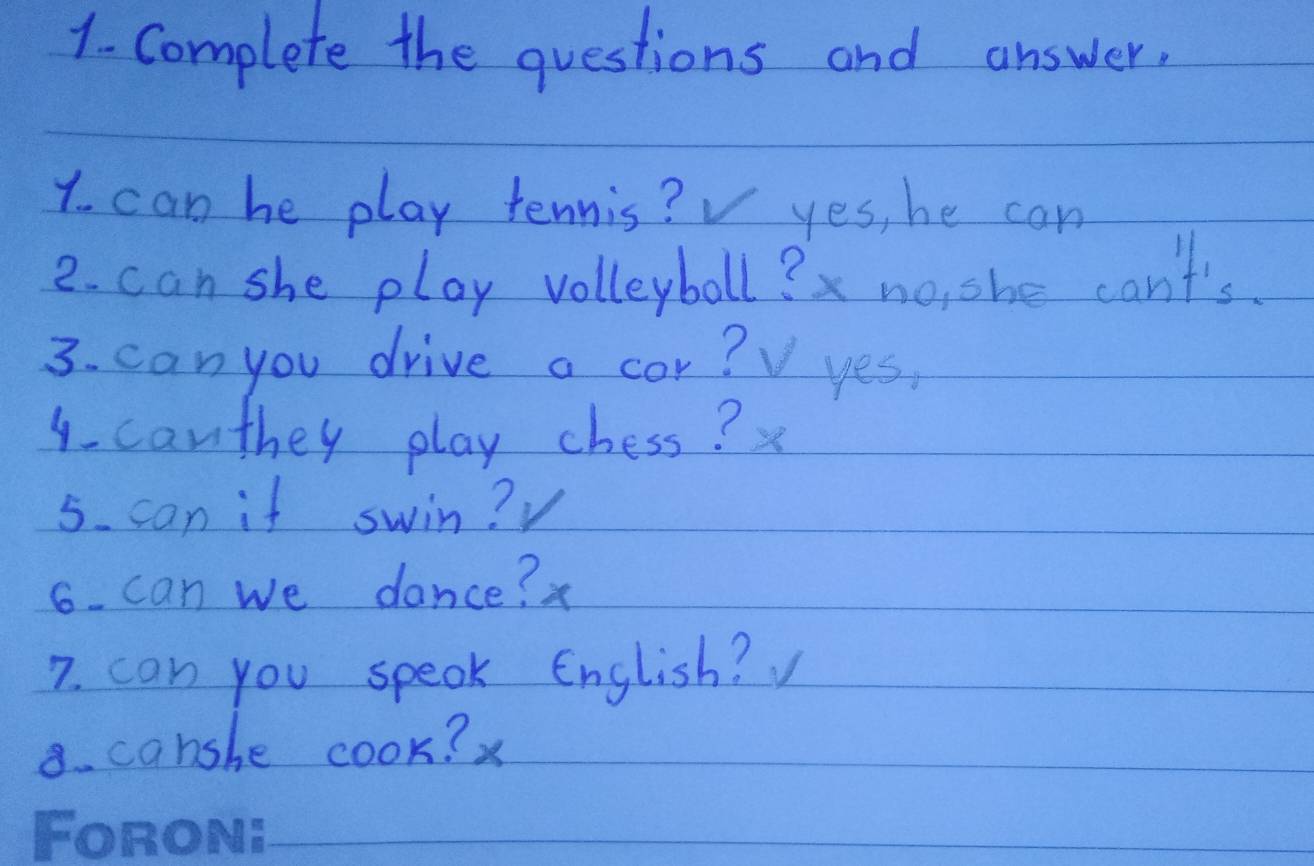 1-Complete the questions and answer.
1-can he play tennis?✓ yes, he can
2-can she play volleyball?x no, she cant's.
3-can you drive a car?✓ yes,
4-can they play chess?x
5-can it swin?✓
6-can we dance?x
7.can you speak English?✓
8-can she cook?x
FORONi